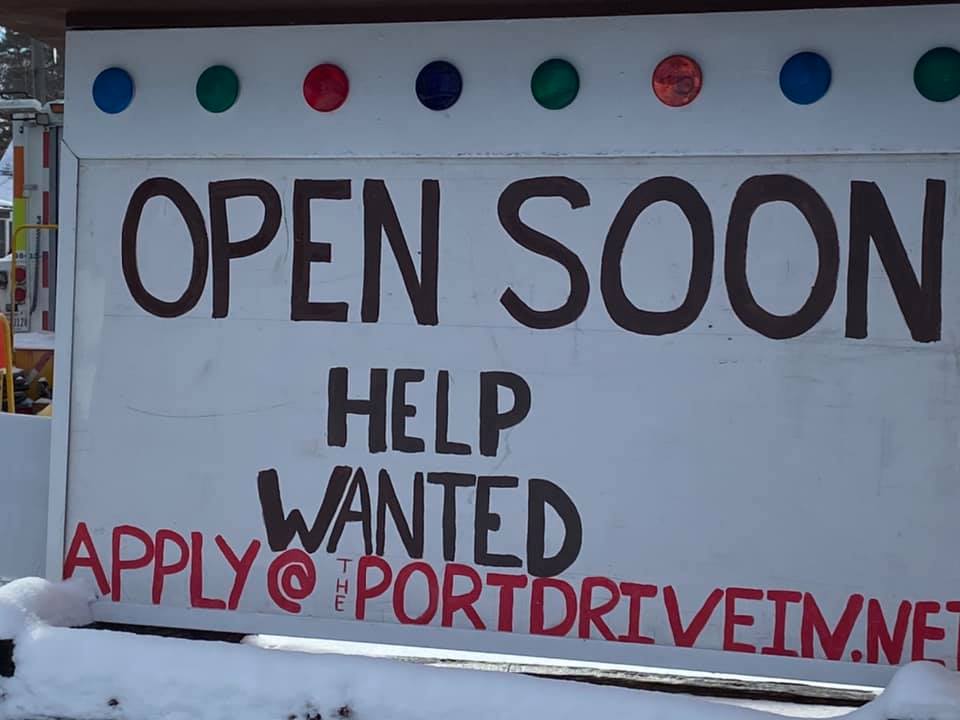 OPEN SOON
HELP
WANTED
APPLY@THEPORTDRIVEIN.NET